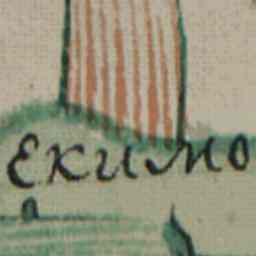 Екимо